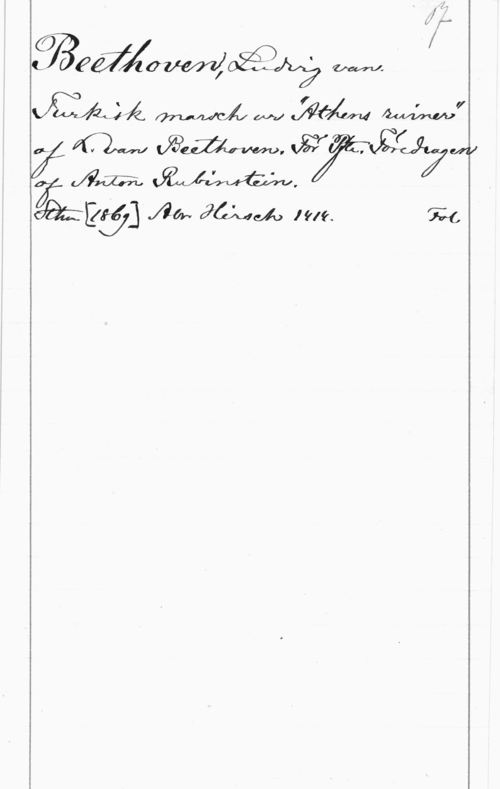 Beethoven, Ludvig van.
Turkisk marsch ur "Athens ruiner"
af L. van Beethoven. För Pfte. Föredragen
af Anton Rubinstein.
Sthm [1869] Abr. Hirsch 1414. Fol.